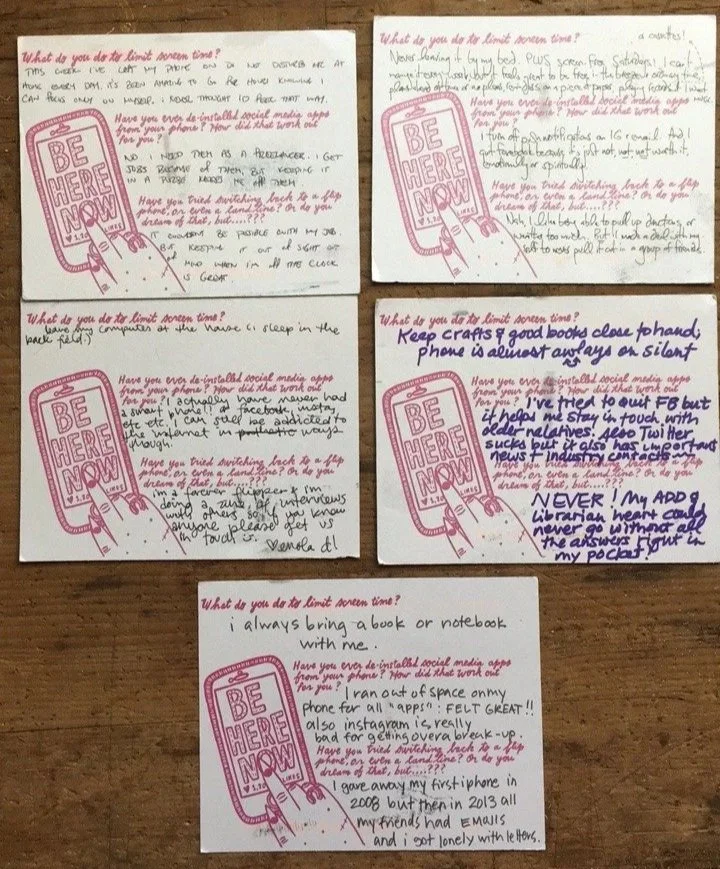 What do you do to limit screen time?
THIS WEEK I'VE LEFT MY PHONE ON DO NOT DISTURB ME AT
HOME EVERY DAY. IT'S BEEN AMAZING TO GO FOR HOURS KNOWING I
CAN FOCUS ONLY ON MYSELF. I NEVER THOUGHT I'D FEEL THAT WAY.
Have you ever de-installed social media apps
from your phone? How did that work out
for you?
NO I NEED THEM AS A FREELANCER. I GET
JOBS BECAUSE OF THEM, BUT KEEPING IT
IN A PURSE KEEPS ME off THEM.
Have you tried switching back to a flip
phone, or even a land line? Or do you
dream of that, but....???
IT WOULDN'T BE POSSIBLE WITH MY JOB
BUT KEEPING IT OUT OF SIGHT OUT
of MIND WHEN I'M off THE CLOCK
IS GREAT.
BE
HERE
NOW
♥ 1,70 LIKES
What do you do to limit screen time?
a cassettes!
Never having it by my bed. PLUS screen free Saturdays! I can't
manage it every week but it feels great to be free in the
on a piece of paper, playing records if I want
music
Have you ever de-installed social media apps
from your phone? How did that work out
for you?
I turn off push notifications on IG & email. And I
because it's just not, not, not worth it,
emotionally or spiritually.
Have you tried switching back to a flip
phone, or even a land line? Or do you
dream of that, but....???
Nah, I like being able to pull up directions, or
too much. But I made a deal with my
self to never pull it out in a group of friends.
BE
HERE
NOW
♥ 1,70 LIKES
What do you do to limit screen time?
leave my computer at the house (i sleep in the
back field.)
Have you ever de-installed social media apps
from your phone? How did that work out
for you?
I actually have never had
a smart phone!! or facebook, insta,
etc etc. I can still be addicted to
the internet in pathetic ways
though.
Have you tried switching back to a flip
phone, or even a land line? Or do you
dream of that, but....???
i'm a forever flipper & i'm
doing a zine of interviews
with others so if you know
anyone please let us
in touch is.
♥ enola d!
BE
HERE
NOW
♥ 1,70 LIKES
What do you do to limit screen time?
Keep crafts & good books close to hand;
phone is almost always on silent
Have you ever de-installed social media apps
from your phone? How did that work out
for you?
I've tried to quit FB but
it helps me stay in touch with
older relatives. Also Twitter
sucks but it also has important
news + industry contacts
Have you tried switching back to a flip
phone, or even a land line? Or do you
dream of that, but....???
NEVER! My ADD &
librarian heart could
never go without all
the answers right in
my pocket!
BE
HERE
NOW
♥ 1,70 LIKES
What do you do to limit screen time?
i always bring a book or notebook
with me.
Have you ever de-installed social media apps
from your phone? How did that work out
for you?
I ran out of space on my
phone for all "apps": FELT GREAT!!
also instagram is really
bad for getting over a break-up.
Have you tried switching back to a flip
phone, or even a land line? Or do you
dream of that, but....???
I gave away my first iphone in
2008 but then in 2013 all
my friends had EMAILS
and i got lonely with letters.
BE
HERE
NOW
♥ 1,70 LIKES